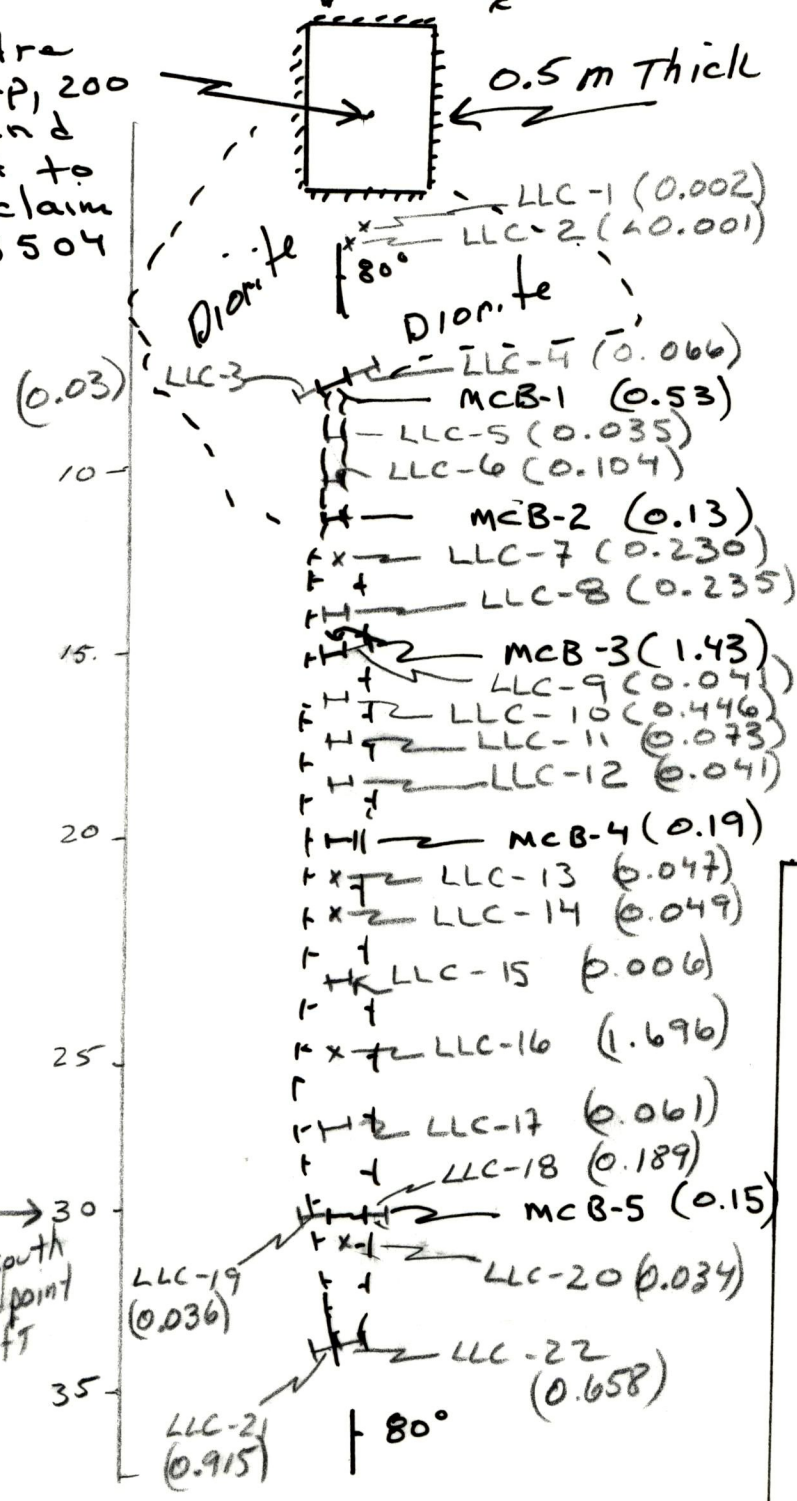 0.5 m Thick
P, 200
to
claim
504
LLC-1 (0.002)
LLC-2 (<0.001)
80°
Diorite
Diorite
LLC-4 (0.066)
(0.03) LLC-3
MCB-1 (0.53)
LLC-5 (0.035)
10
LLC-6 (0.104)
MCB-2 (0.13)
LLC-7 (0.230)
LLC-8 (0.235)
15.
MCB-3 (1.43)
LLC-9 (0.041)
LLC-10 (0.446)
LLC-11 (0.073)
LLC-12 (0.041)
20
MCB-4 (0.19)
LLC-13 (0.047)
LLC-14 (0.049)
LLC-15 (0.006)
25
LLC-16 (1.696)
LLC-17 (0.061)
LLC-18 (0.189)
30
MCB-5 (0.15)
LLC-19
(0.036)
LLC-20 (0.034)
point
LLC-22
(0.658)
35
LLC-21
(0.915)
80°